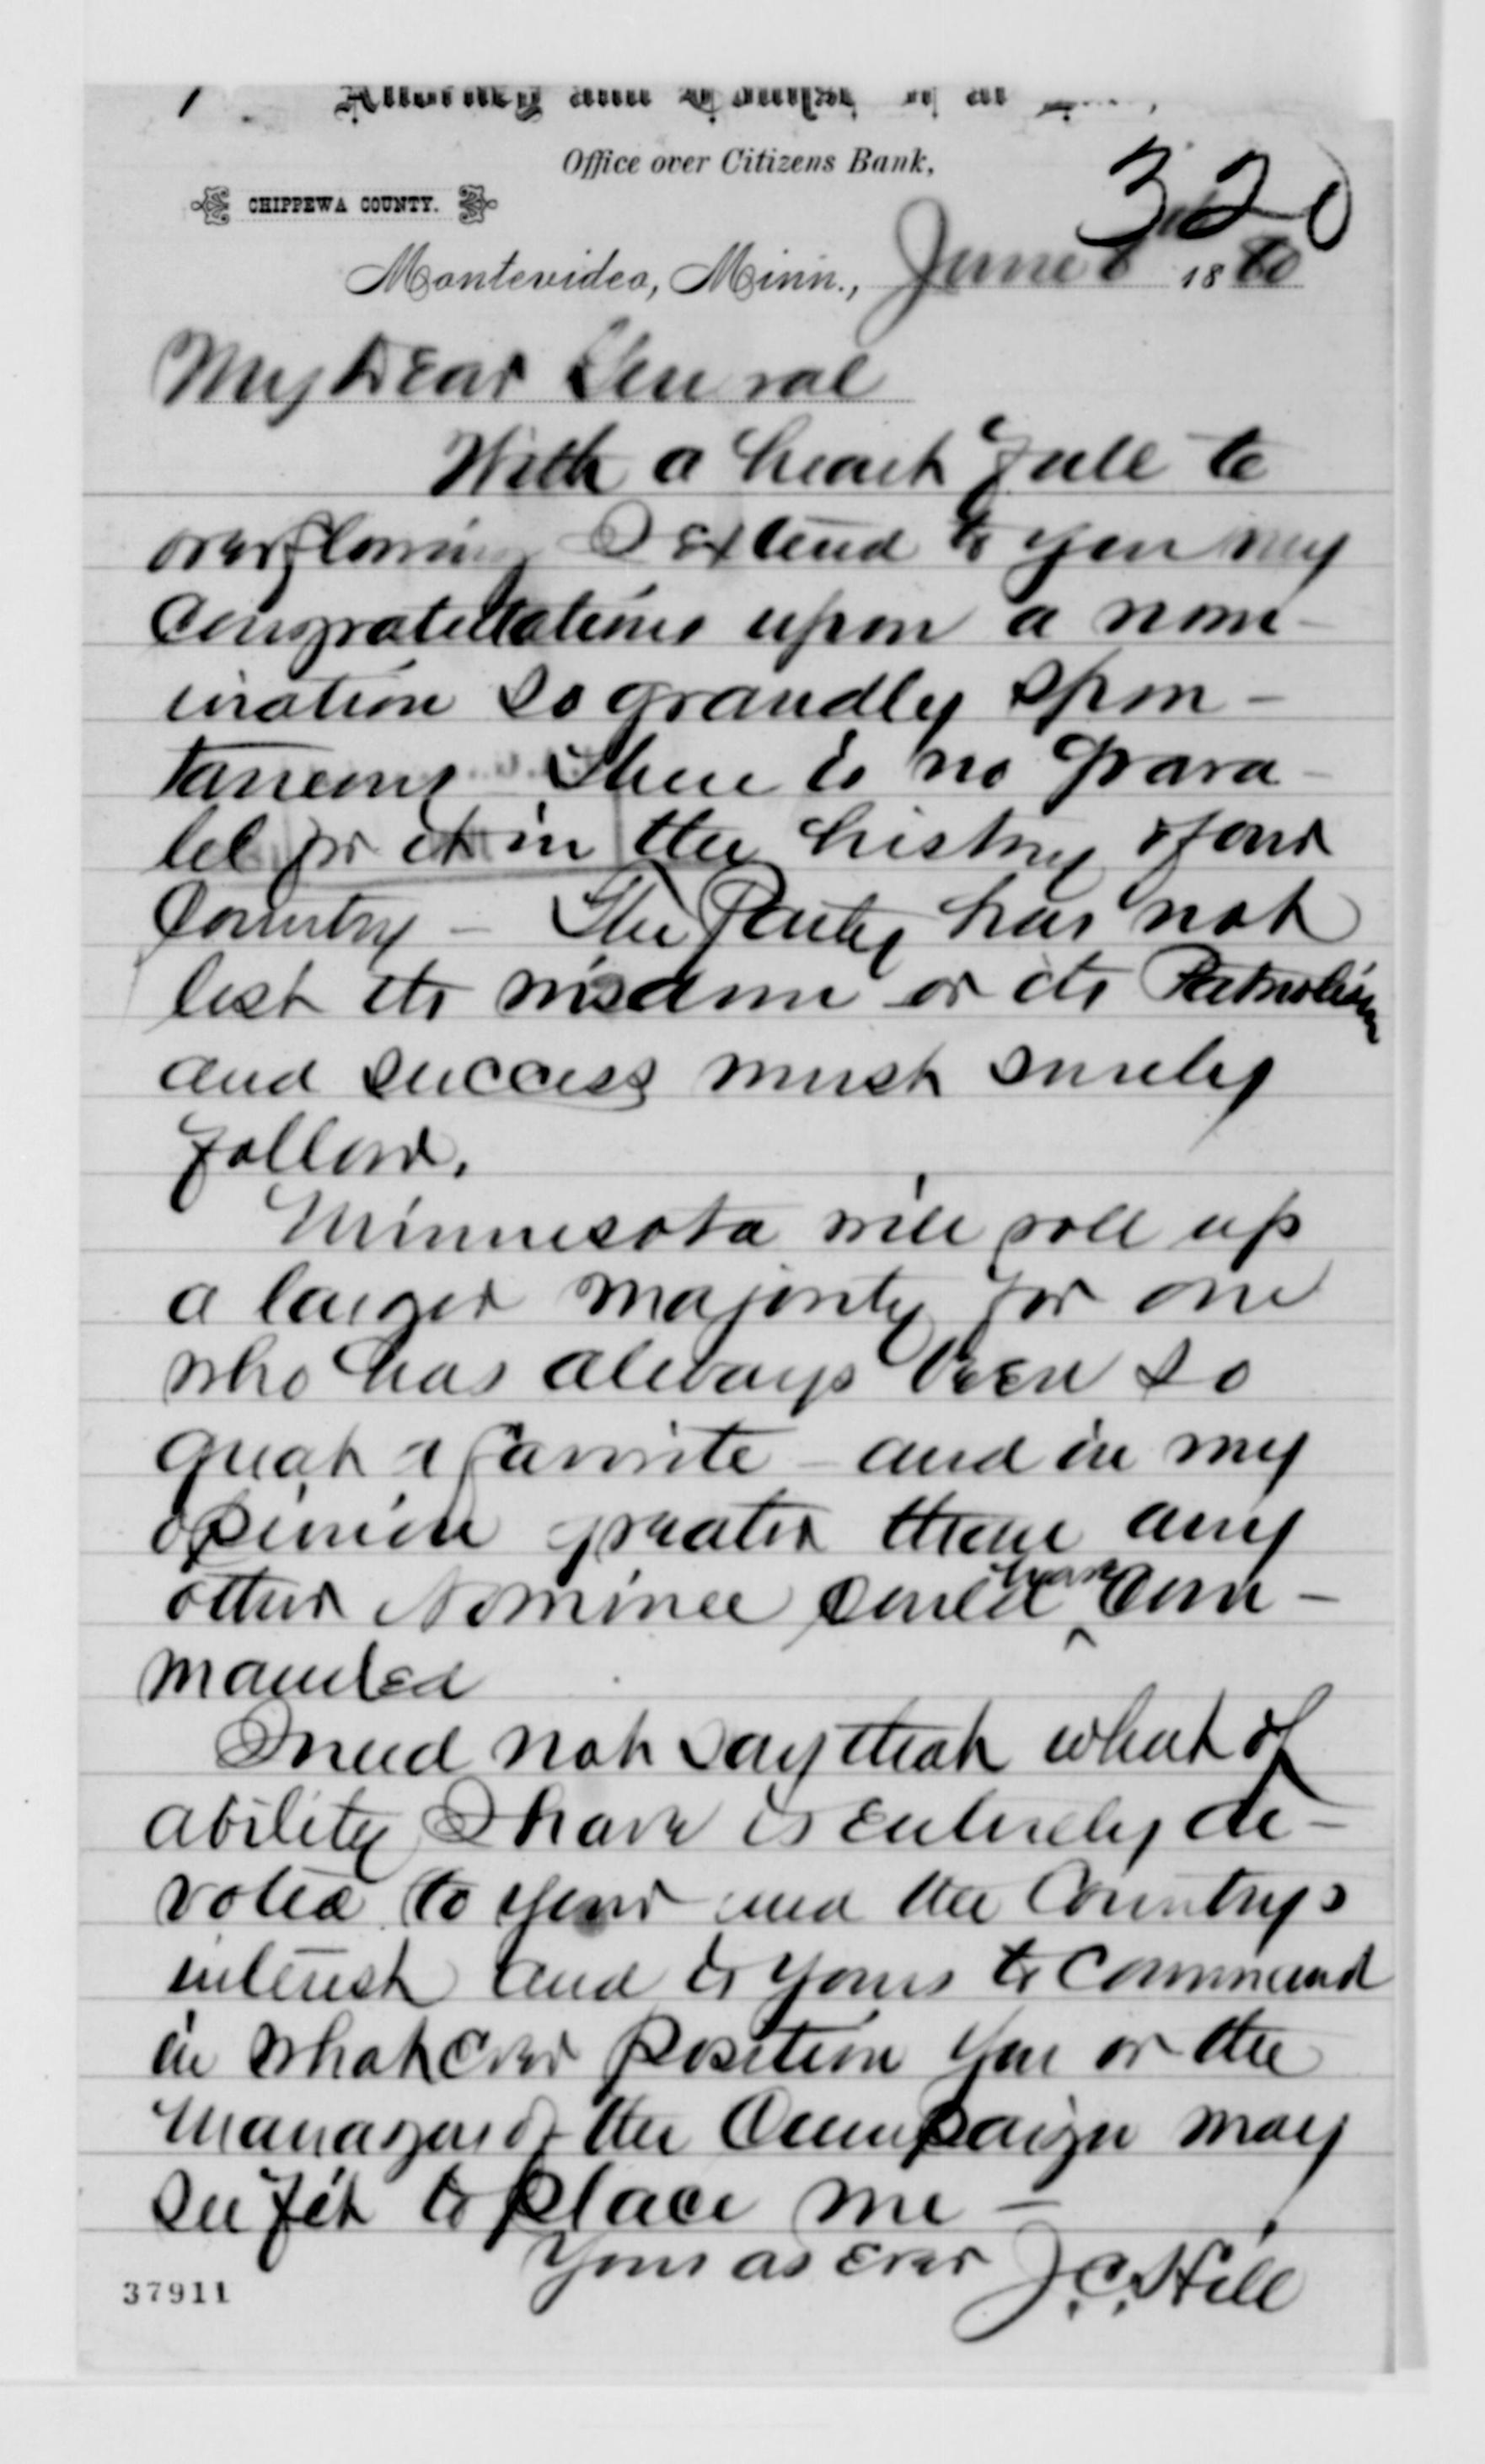 Attorney and Counselor at Law,
Office over Citizens Bank,
320
CHIPPEWA COUNTY.
Montevideo, Minn., June 8 1880
My Dear General
With a heart full to
overflowing I extend to you my
Congratulations upon a nom-
ination so grandly spon-
taneous There is no para-
lel for it in the history of our
Country - The Party has not
lost its wisdom or its Patriotism
and success must surely
follow.
Minnesota will roll up
a larger majority for one
who has always been so
great a favorite - and in my
opinion greater than any
other Nominee could have Com-
manded
I need not say that what of
ability I have is entirely de-
voted to your and the Countrys
interest and is yours to command
in whatever position you or the
Managers of the Campaign may
see fit to place me -
Yours as ever J.C. Hill
37911